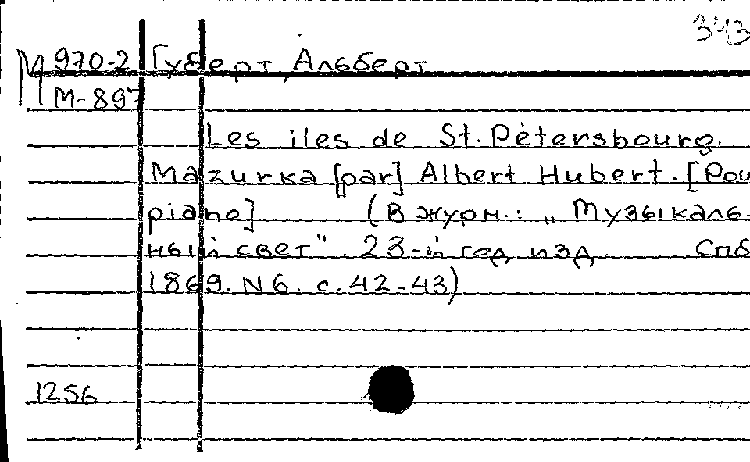 343
М 970-2 Губерт, Альберт
М-897
Les iles de St. Pètersbourg.
Mazurka [par] Albert Hubert. [Pou
piano] (В журн.: „Музыкаль-
ный свет" 23-й год изд Спб
1869. N6. с. 42-43)
1256